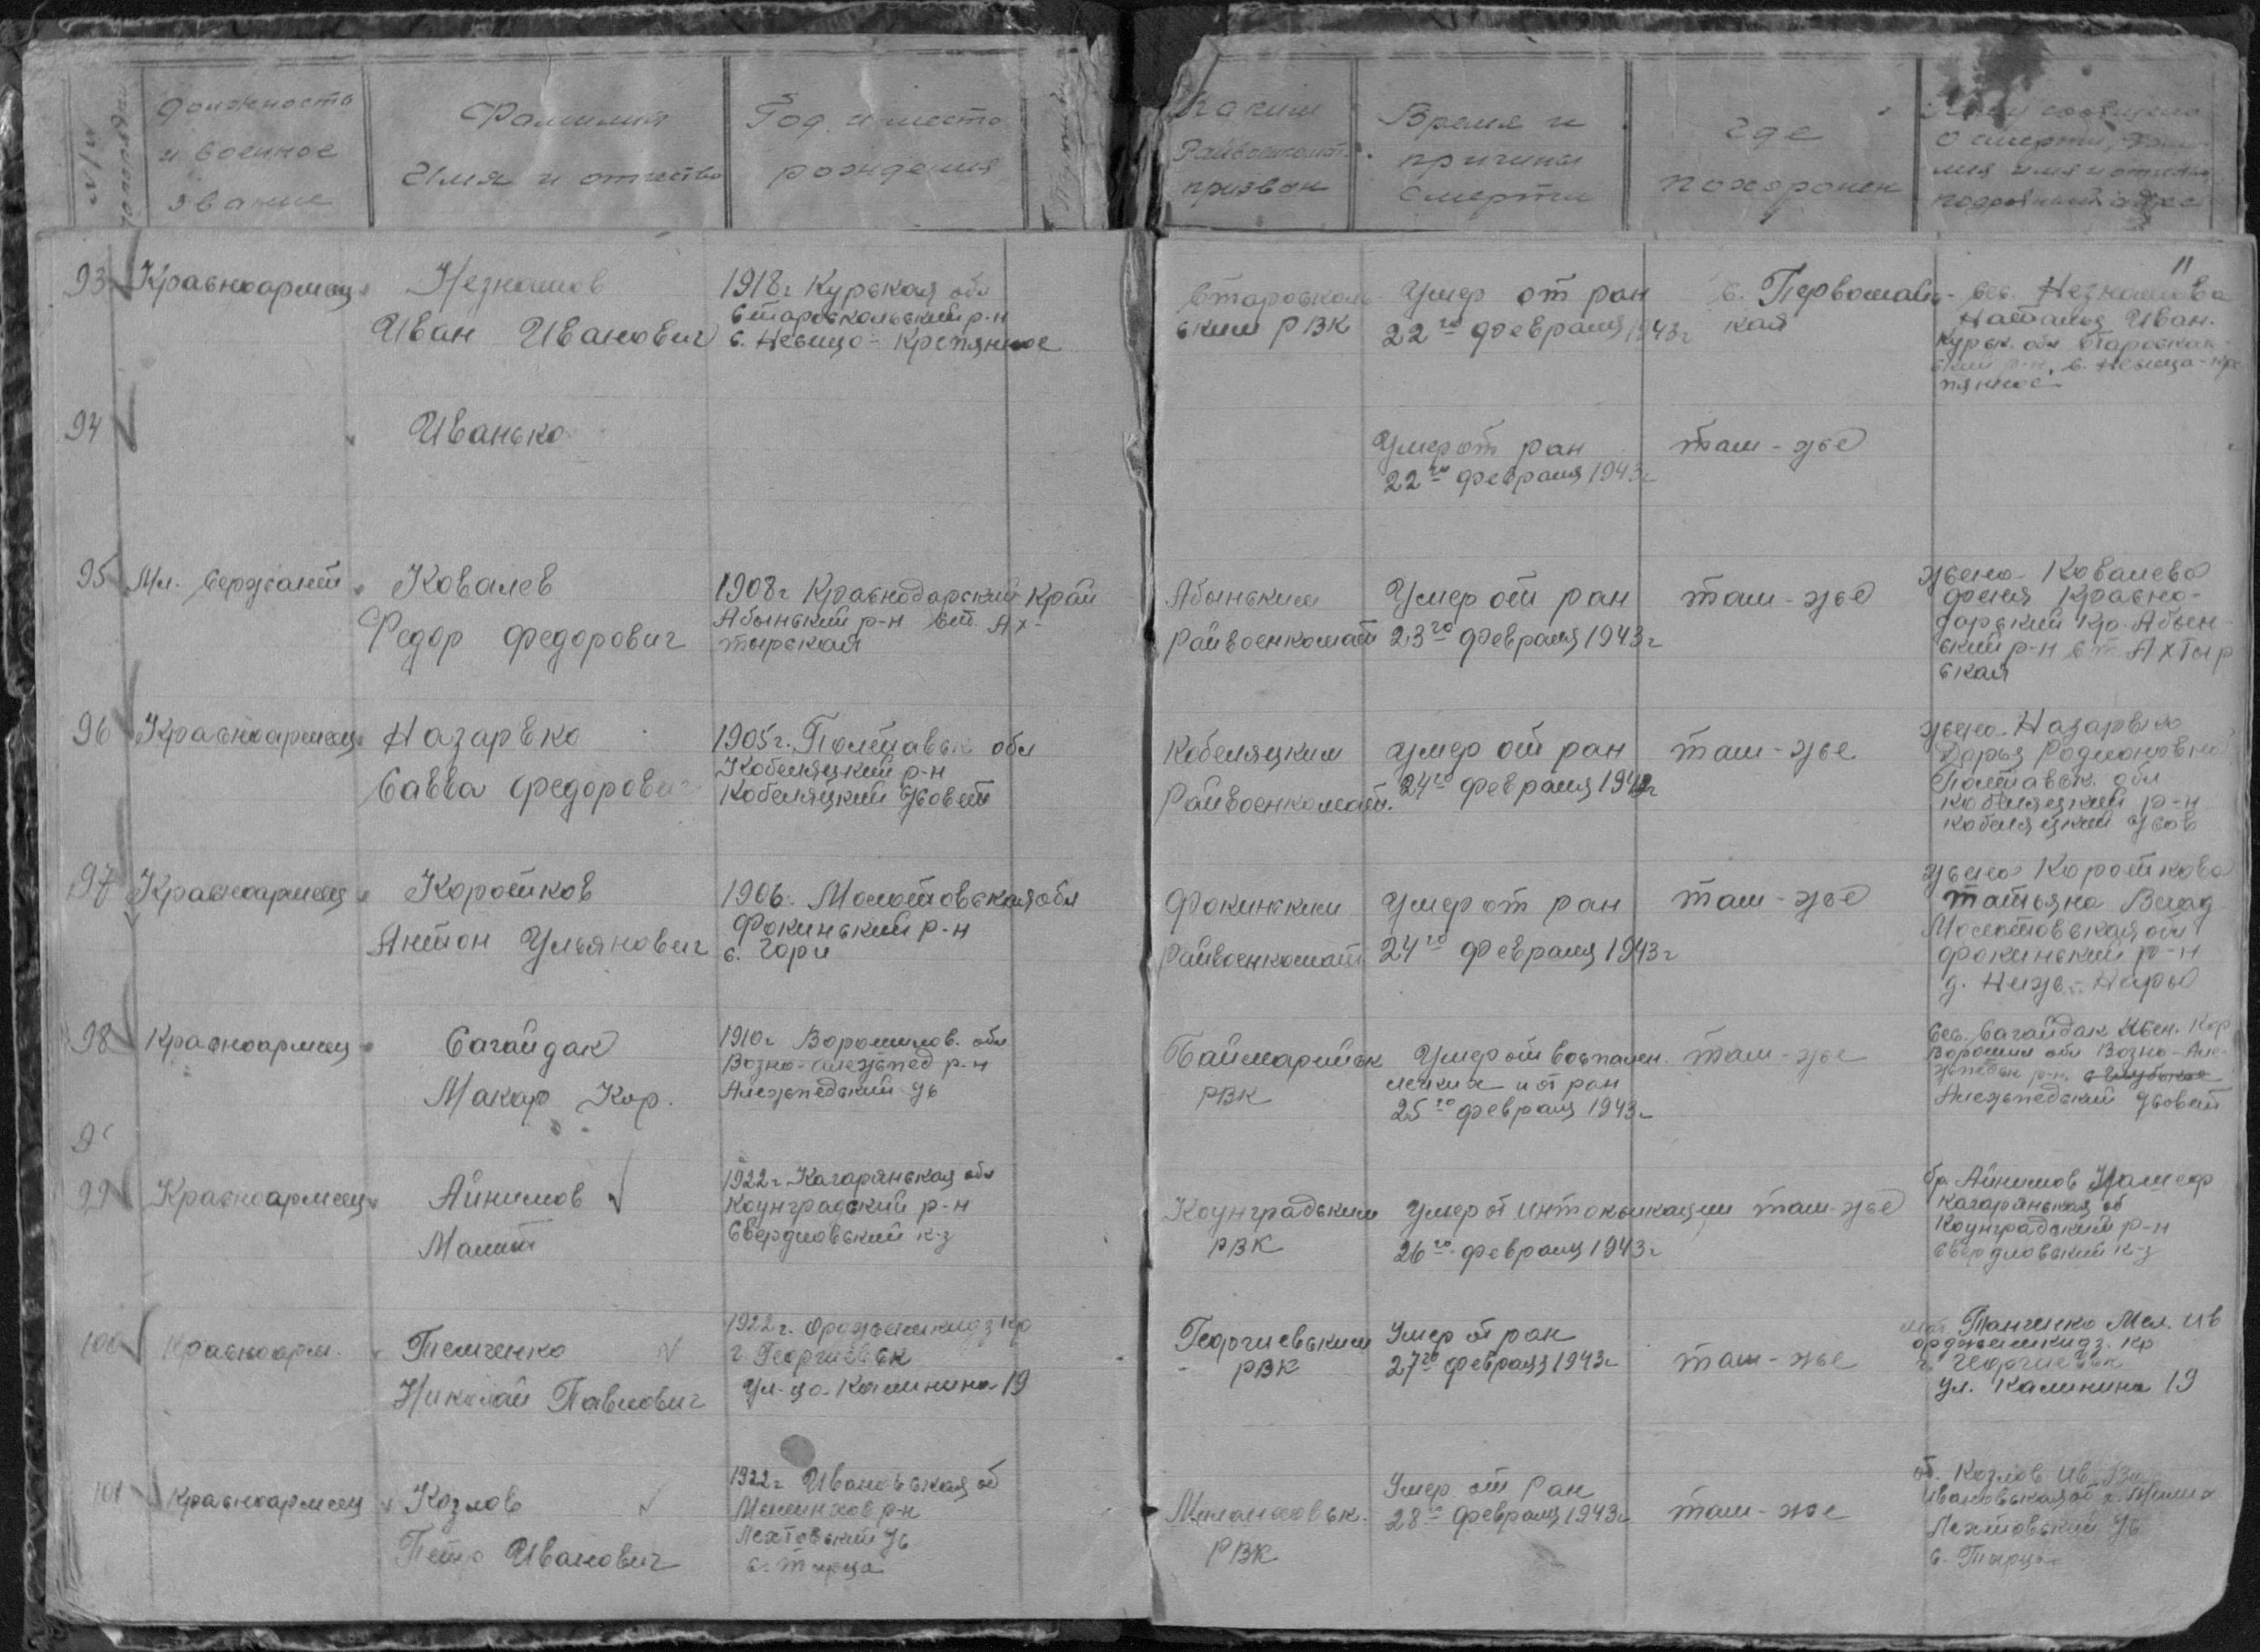 №/№
Должность
и военное
звание
Фамилия
Имя и отчество
Год и место
рождения
Каким
Райвоенкомат.
призван
Время и
причины
смерти
где
похоронен
Кому сообщено
о смерти, фами-
лия имя и отчество
подробный адрес
11
93 Красноармеец
Незнамов
Иван Иванович
1918г Курская обл
Староскольский р-н
с. Незнамо-
Старосколь
ским РВК
Умер от ран
22го февраля 1943г
с. Первомайс-
кая
сес. Незнамова
Наталья Иван.
Курск. обл Староскол-
ский р-н. с.
94
Иванько
Умер от ран
22го февраля 1943г
там-же
95 Мл. сержант
Ковалев
Федор Федорович
1908г Краснодарский край
Абынский р-н ст. Ах-
тырская
Абынским
Райвоенкомат
Умер от ран
23го февраля 1943г
там-же
жена Ковалева
феня Красно-
дарский кр. Абын-
ский р-н ст Ахтыр
ская
96 Красноармеец
Назаревко
Савва Федорович
1905г. Полтавск обл
Кобеляцкий р-н
Кобеляцкий с/совет
Кобеляцким
Райвоенкомат.
умер от ран
24го февраля 1943г
там-же
жена Назаревко
Дарья Родионовна
Полтавск. обл
Кобеляцкий р-н
Кобеляцкий с/сов
97 Красноармеец
Коротков
Антон Ульянович
1906. Молотовская обл
Фокинский р-н
с. Гори
Фокинским
Райвоенкомат
Умер от ран
24го февраля 1943г
там-же
жена Короткова
Татьяна Влад
Молотовская обл
Фокинский р-н
д. Ниж-
98 Красноармеец
Сагайдак
Макар Кор.
1910г Ворошилов. обл
Возно-
РВК
Умер от воспален.
легких и от ран
25го февраля 1943г
там-же
сес. Сагайдак Ксен. Кор
Ворошил обл Возно-
99 Красноармеец
Айнимов
Малит
1922г. Кагарянская обл
Коунградский р-н
Свердловский к-з
Коунградским
РВК
умер от интоксикации
26го февраля 1943г
там-же
бр Айнимов
Кагарянская об
Коунградский р-н
Свердловский к-з
100 Красноарм.
Темченко
Николай Павлович
1922г. Орджоникидз кр
г. Георгиевск
ул-ца Калинина 19
Георгиевским
РВК
Умер от ран
27го февраля 1943г
там-же
мат Танченко Мел. Ив
орджоникидз. кр
г. Георгиевск
ул. Калинина 19
101 Красноармеец
Козлов
Петр Иванович
1922г Ивановская об
р-н
Лехтовский с/с
с. Тырца
РВК
Умер от ран
28го февраля 1943г
там-же
от. Козлов Ив.
Ивановская об
Лехтовский с/с
с. Тырца